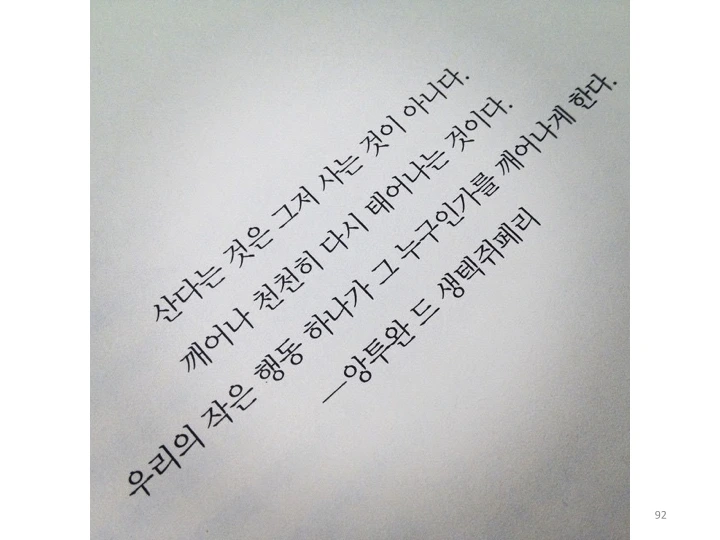 산다는 것은 그저 사는 것이 아니다.
깨어나 천천히 다시 태어나는 것이다.
우리의 작은 행동 하나가 그 누구인가를 깨어나게 한다.
—앙투완 드 생텍쥐페리
92